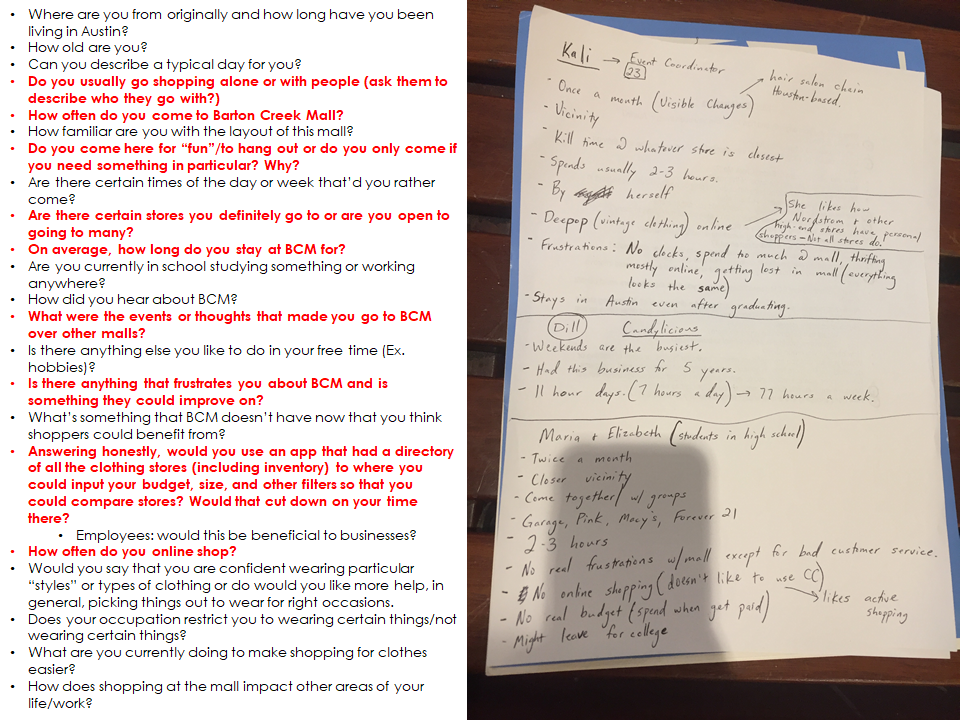 • Where are you from originally and how long have you been
living in Austin?
• How old are you?
• Can you describe a typical day for you?
• Do you usually go shopping alone or with people (ask them to
describe who they go with?)
• How often do you come to Barton Creek Mall?
• How familiar are you with the layout of this mall?
• Do you come here for “fun”/to hang out or do you only come if
you need something in particular? Why?
• Are there certain times of the day or week that’d you rather
come?
• Are there certain stores you definitely go to or are you open to
going to many?
• On average, how long do you stay at BCM for?
• Are you currently in school studying something or working
anywhere?
• How did you hear about BCM?
• What were the events or thoughts that made you go to BCM
over other malls?
• Is there anything else you like to do in your free time (Ex.
hobbies)?
• Is there anything that frustrates you about BCM and is
something they could improve on?
• What’s something that BCM doesn’t have now that you think
shoppers could benefit from?
• Answering honestly, would you use an app that had a directory
of all the clothing stores (including inventory) to where you
could input your budget, size, and other filters so that you
could compare stores? Would that cut down on your time
there?
• Employees: would this be beneficial to businesses?
• How often do you online shop?
• Would you say that you are confident wearing particular
“styles” or types of clothing or do would you like more help, in
general, picking things out to wear for right occasions.
• Does your occupation restrict you to wearing certain things/not
wearing certain things?
• What are you currently doing to make shopping for clothes
easier?
• How does shopping at the mall impact other areas of your
life/work?
Kali → Event Coordinator
23
- Once a month (Visible Changes) → hair salon chain
Houston-based.
- Vicinity
- Kill time @ whatever store is closest
- Spends usually 2-3 hours.
- By herself
- Deepop (vintage clothing) online → She likes how
Nordstrom + other
high-end stores have personal
shoppers - Not all stores do.
- Frustrations: No clocks, spend too much @ mall, thrifting
mostly online, getting lost in mall (everything
looks the same)
- Stays in Austin even after graduating.
Dill Candylicious
- Weekends are the busiest.
- Had this business for 5 years.
- 11 hour days. (7 hours a day) → 77 hours a week.
Maria + Elizabeth (students in high school)
- Twice a month
- Closer vicinity
- Come together/ w/ groups
- Garage, Pink, Macy's, Forever 21
- 2-3 hours
- No real frustrations w/mall except for bad customer service.
- No online shopping (doesn't like to use CC) → likes active
shopping
- No real budget (spend when get paid)
- Might leave for college